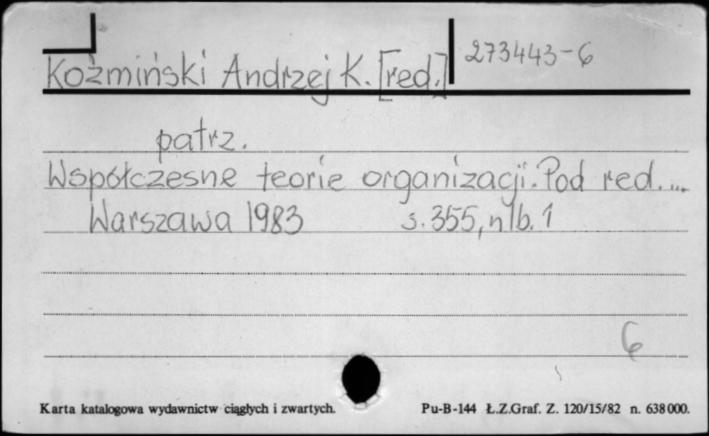 Koźmiński Andrzej K. [red.] 273443-6
patrz.
Współczesne teorie organizacji. Pod red. ...
Warszawa 1983 s. 355, nlb. 1
6
Karta katalogowa wydawnictw ciągłych i zwartych. Pu-B-144 Ł.Z.Graf. Z. 120/15/82 n. 638000.